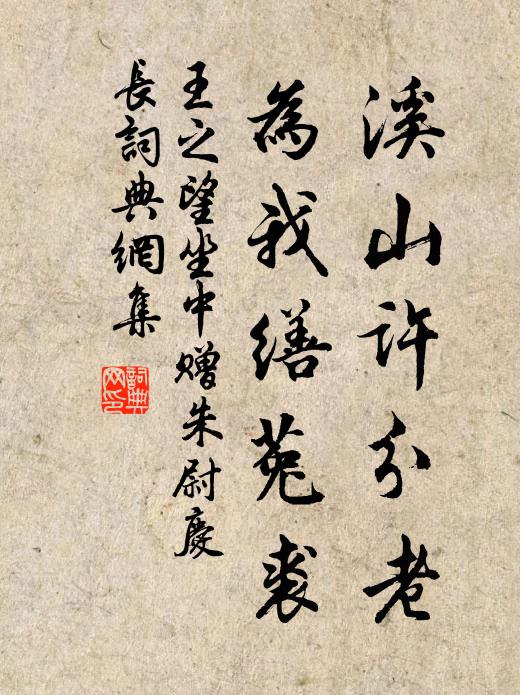 溪山許分老
為我繕菟裘
王之望坐中贈朱尉慶
長詞典網集
詞典
网印